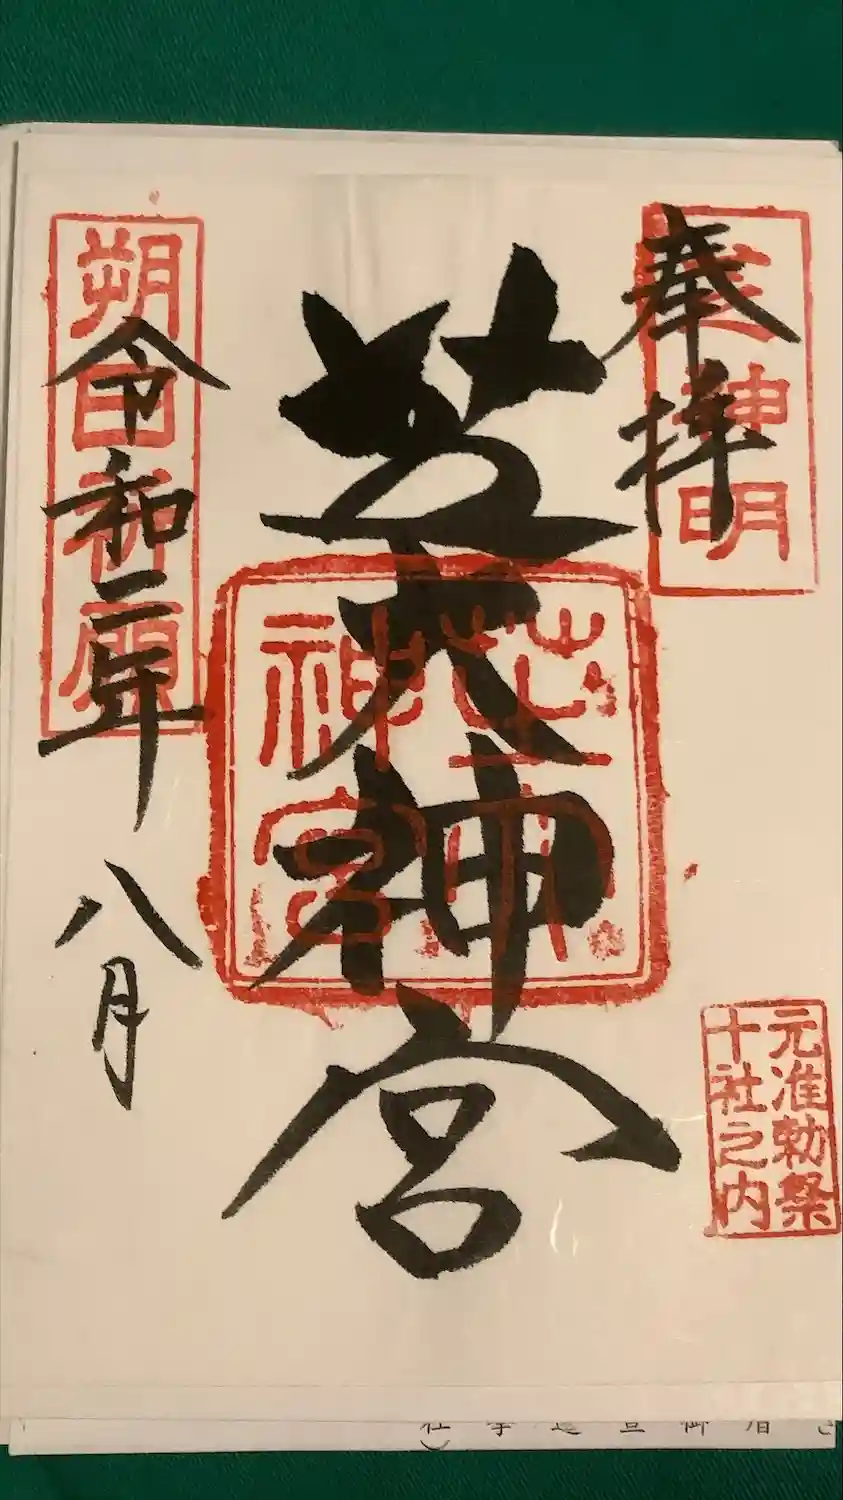 奉拝
芝神明
芝大神宮
芝大
神宮
元准勅祭
十社之内
令和二年八月
朔日祈願